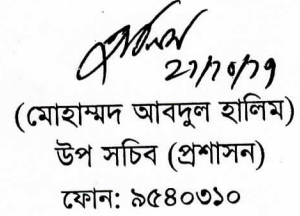 ২১/১০/১৭
(মোহাম্মদ আবদুল হালিম)
উপ সচিব (প্রশাসন)
ফোন: ৯৫৪০৩১০